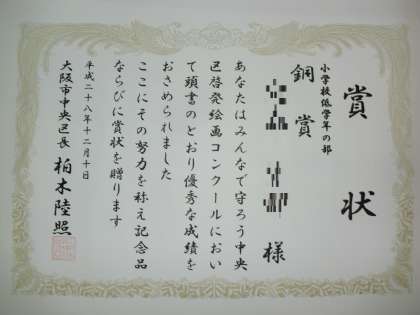 賞状
小学校低学年の部
銅賞
様
あなたはみんなで守ろう中央
区啓発絵画コンクールにおい
て頭書のとおり優秀な成績を
おさめられました
ここにその努力を称え記念品
ならびに賞状を贈ります
平成二十八年十二月十日
大阪市中央区長 柏木陸照